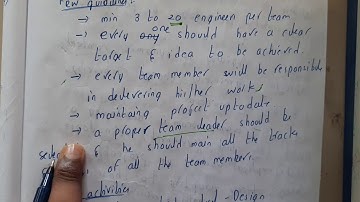 few guidlines:
→ min 3 to 20 engineer per team
→ every one should have a clear
target & idea to be achieved.
→ every team member will be responsible
in delevering his/her works
→ maintaing project uptodate
→ a proper team leader should be
sele & he should main all the tracks
of all the team members.
activities
Design